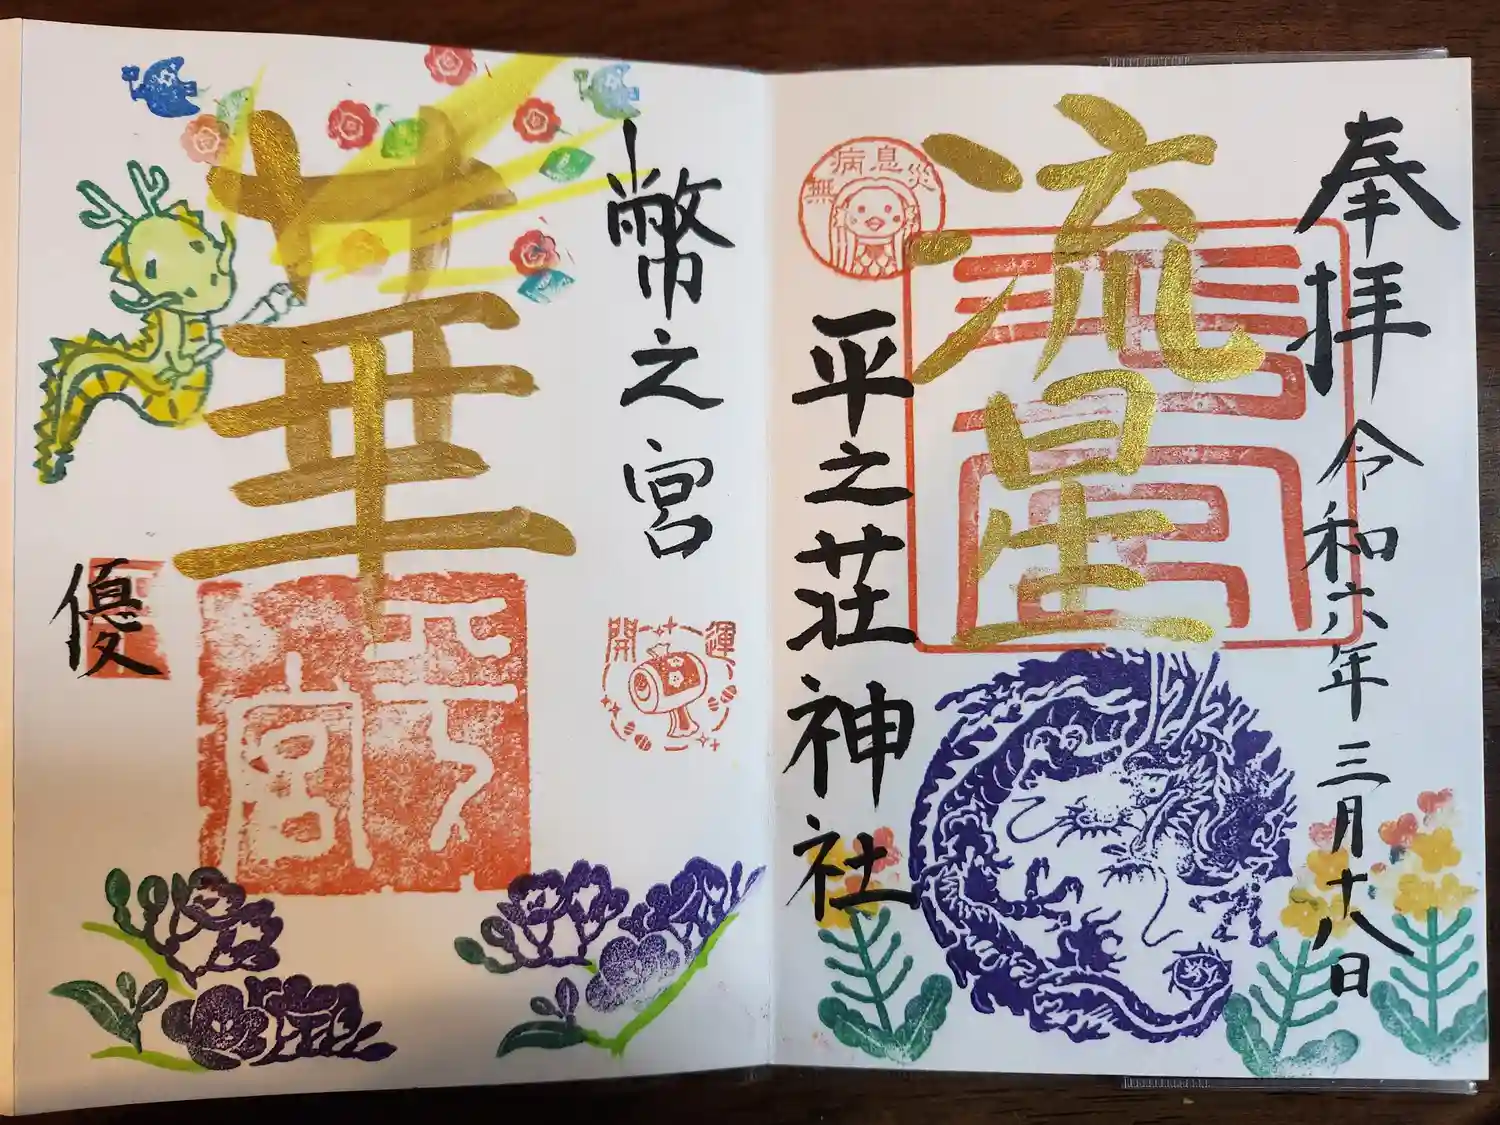 奉拝
令和六年三月十八日
流星
無病息災
平之荘神社
幣之宮
華
開運
優